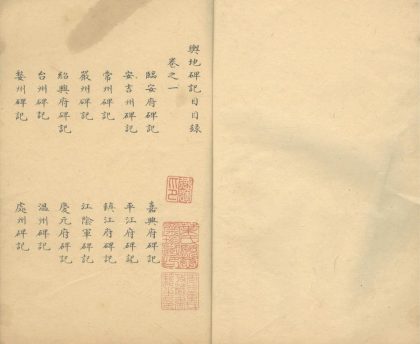 輿地碑記目目錄
卷之一
臨安府碑記 嘉興府碑記
安吉州碑記 平江府碑記
常州碑記 鎮江府碑記
嚴州碑記 江陰軍碑記
紹興府碑記 慶元府碑記
台州碑記 溫州碑記
婺州碑記 處州碑記